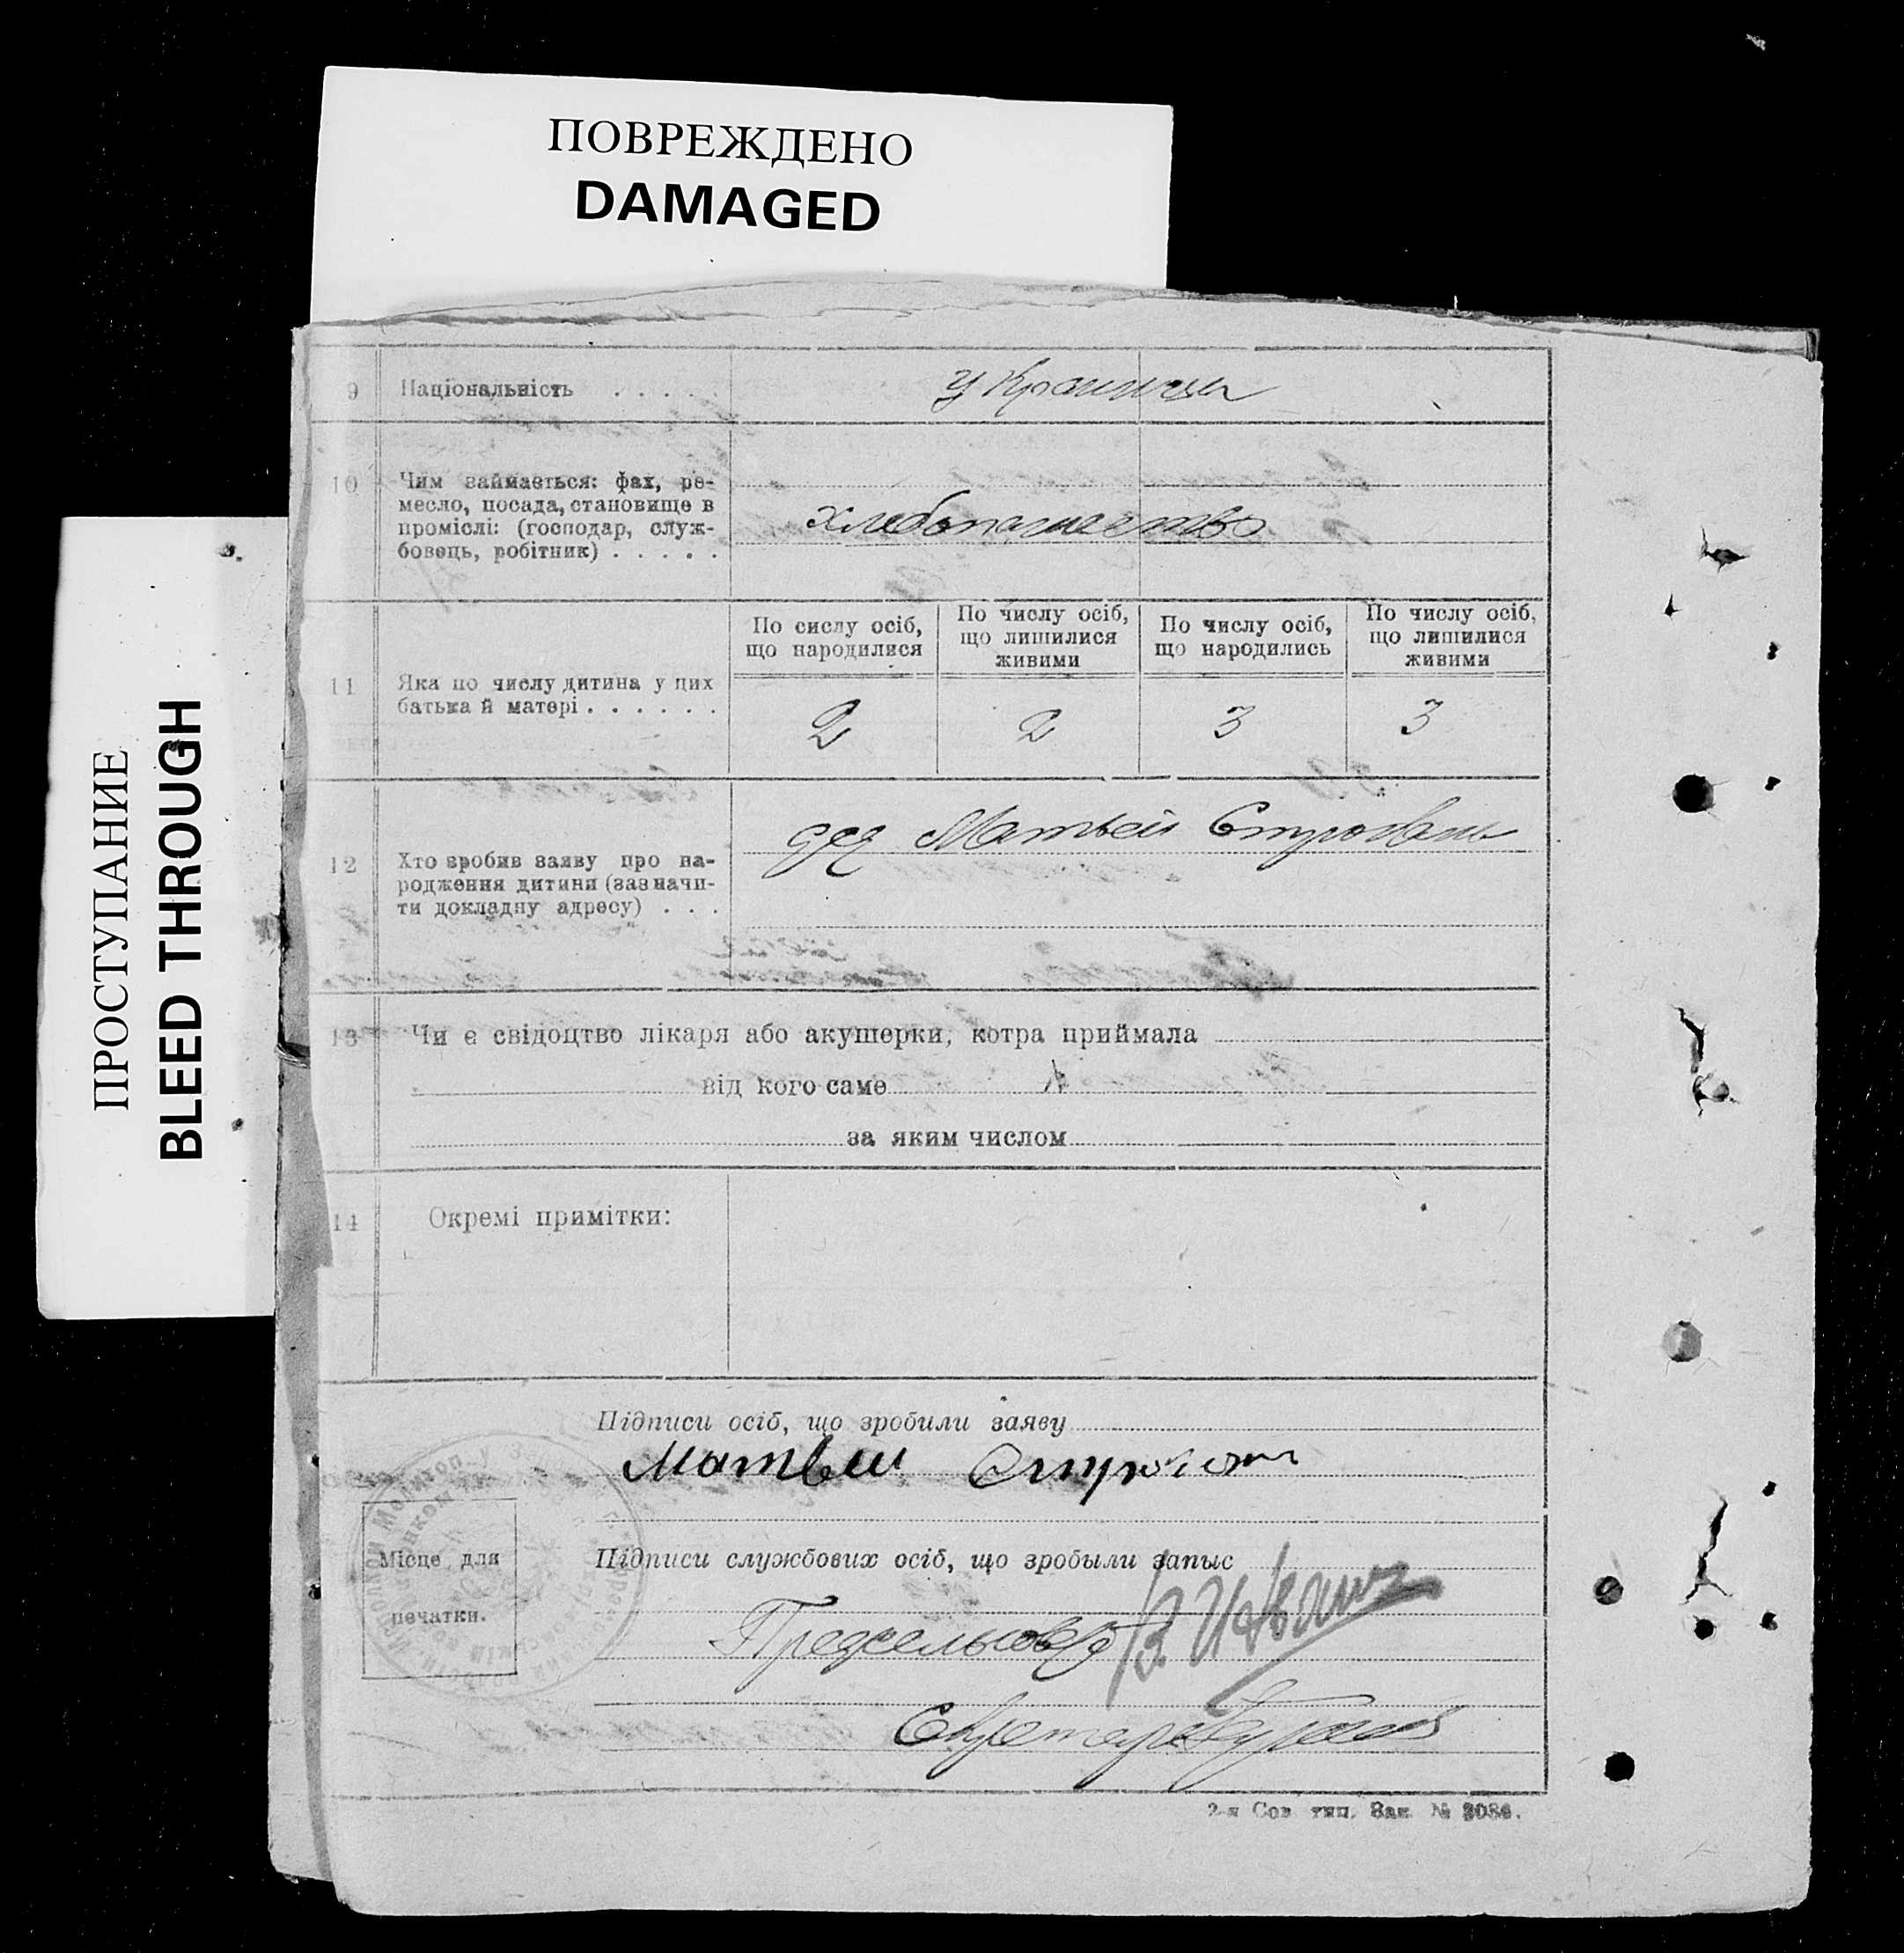 ПОВРЕЖДЕНО
DAMAGED
ПРОСТУПАНИЕ
BLEED THROUGH
9 Національність . . . . . украинцы
10 Чим займається: фах, ре-
месло, посада, становище в
проміслі: (господар, служ-
бовець, робітник) . . . . .
хлебопашество
11 Яка по числу дитина у цих
батька й матері . . . . . .
По сислу осіб,
що народилися
По числу осіб,
що лишилися
живими
По числу осіб,
що народились
По числу осіб,
що лишилися
живими
2 2 3 3
12 Хто зробив заяву про на-
родження дитини (зазначи-
ти докладну адресу) . . .
дед Матвей
13 Чи є свідоцтво лікаря або акушерки, котра приймала
від кого саме
за яким числом
14 Окремі примітки:
Підписи осіб, що зробили заяву
Матвеи
Місце для
печатки.
Підписи службових осіб, що зробыли запыс
Предсельсовета
Секретарь
2-я Сов тип. Зак. № 3086.